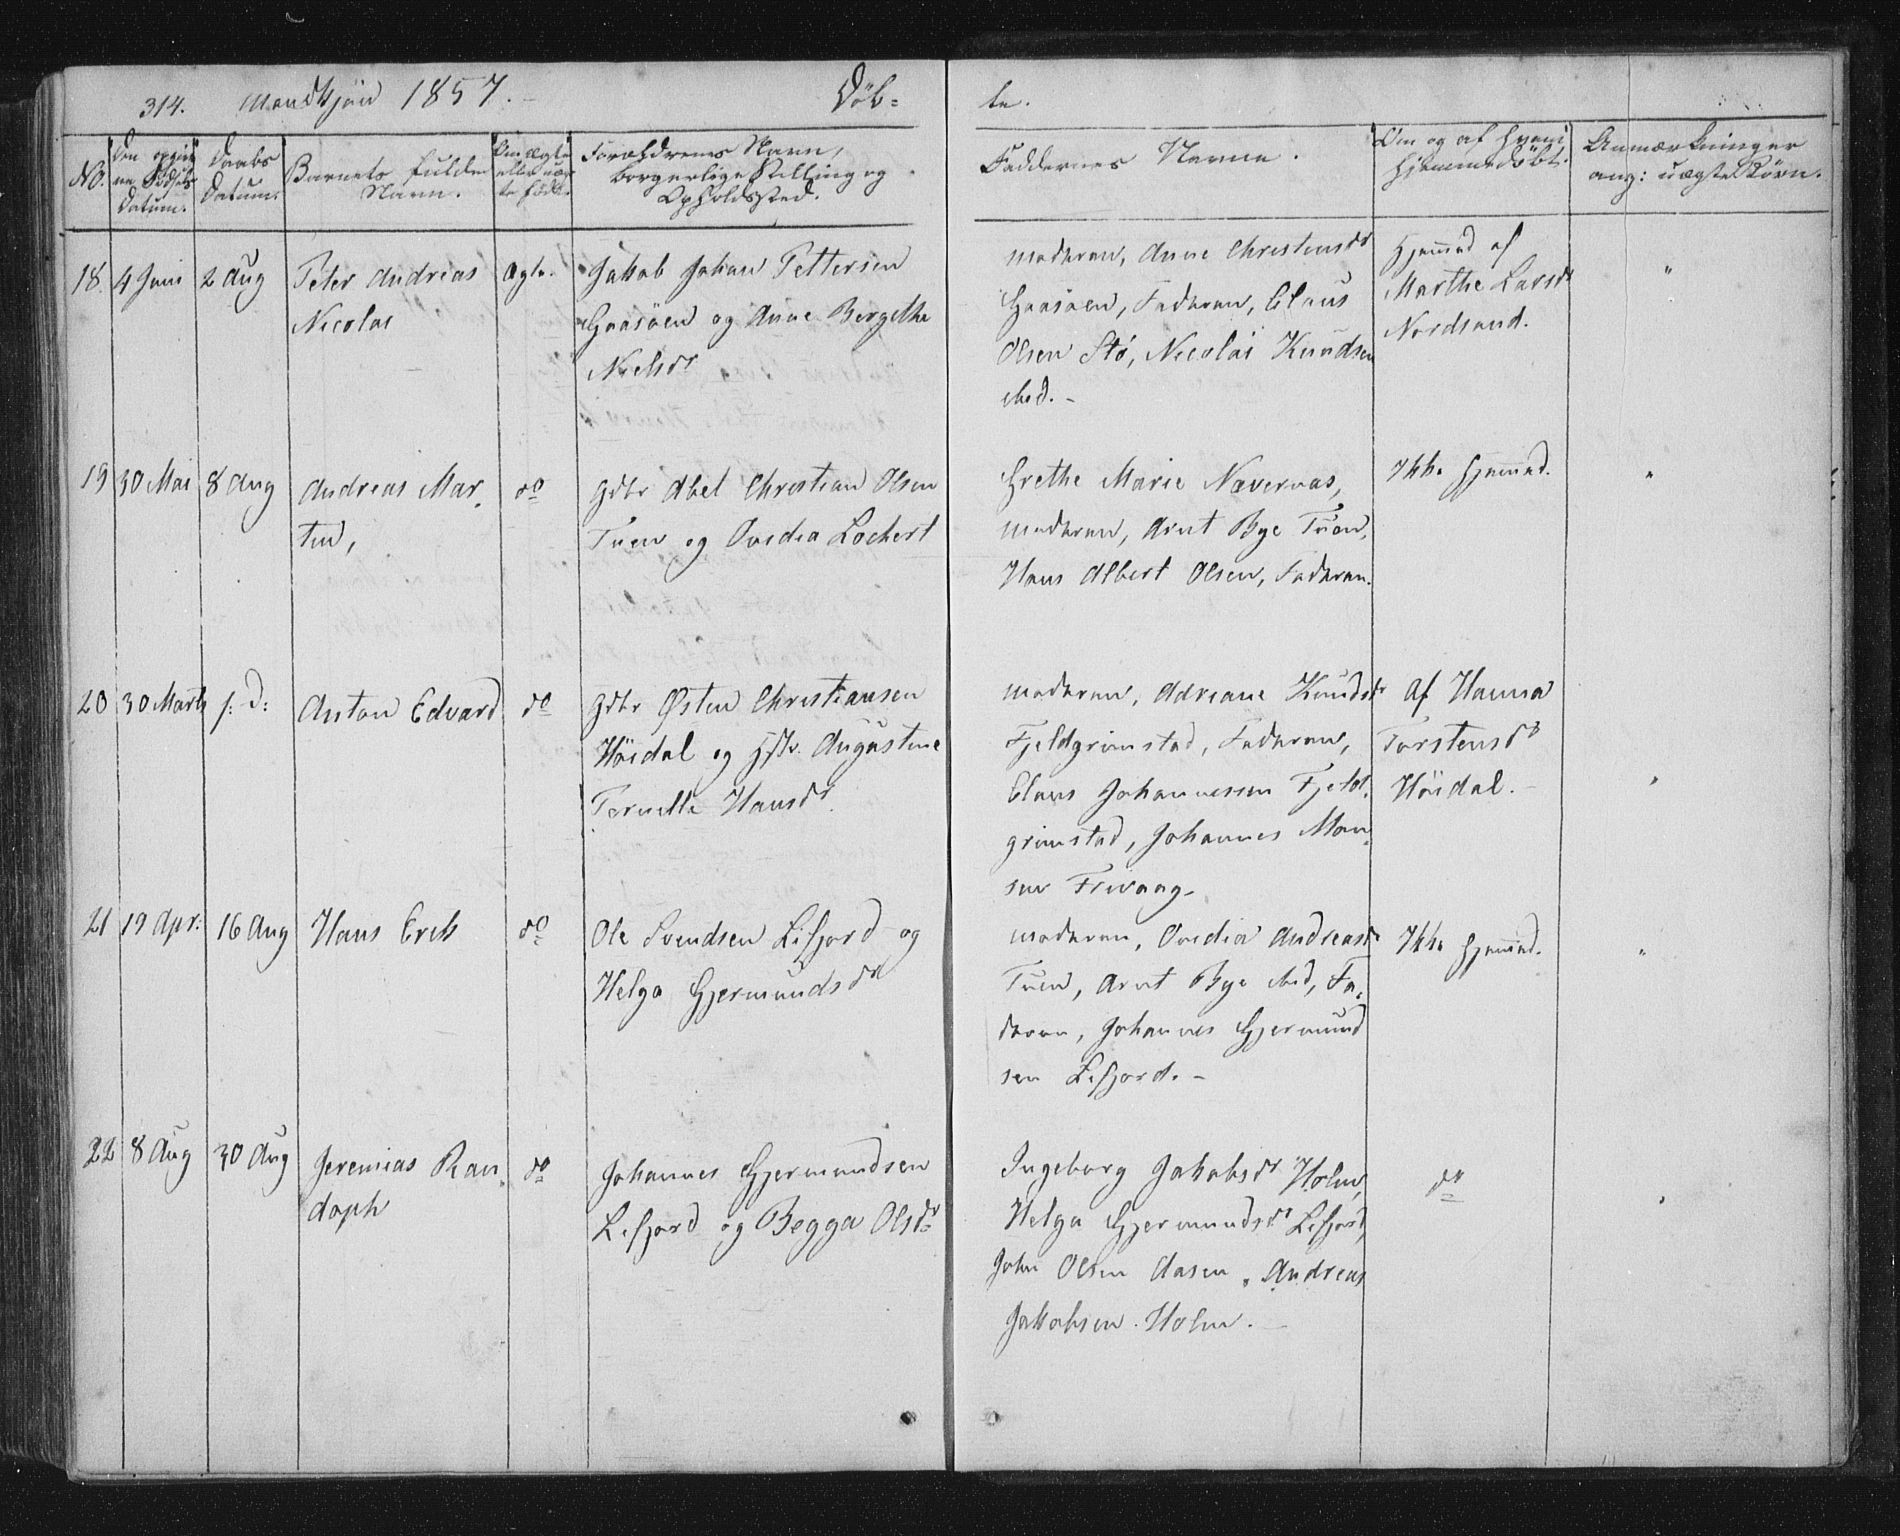 314. Mandkjön 1857. Döb-
te.
No.
Den opgiv-
ne Födsels
Datum.
Daabs
Datum.
Barnets fulde
Navn.
Om ægte
eller uæg-
te født.
Forældrenes Navn,
borgerlige Stilling og
Opholdssted.
Faddernes Navne.
Om og af hvem
hjemmedöbt.
Anmærkninger
ang: uægte Børn.
18. 4 Juni 2 Aug Peter Andreas
Nicolai
Ægte.
Jakob Johan Pettersen
Gaasöen og Anne Bergitha
Nielsdr
moderen, Anne Christensdr
Gaasöen, Faderen, Claus
Olsen Stö, Nicolai Knudsen
ibid. -
Hjemmed af
Marthe Larsdr
Nordsand.
"
19 30 Mai 8 Aug Andreas Mar-
tin,
do
Gdbr Abel Christian Olsen
Tuen og Ovidia Lochert
Grethe Marie Nævernæs,
moderen, Arnt Bye Tuen,
Hans Albert Olsen, Faderen.
Ikke hjemmed.
"
20 30 Marts s: d: Anton Edvard
do
Gdbr Østen Christiansen
Höidal og Hstr. Augustine
Pernille Hansdr.
moderen, Adriane Knudsdr
Fjeldgrimstad, Faderen,
Claus Johannesen Fjeld-
grimstad, Johannes Mon-
sen Frivaag.
Af Hanna
Torstensdr
Höidal. -
"
21 19 Apr: 16 Aug Hans Erik
do
Ole Svendsen Lifjord og
Helga Gjermundsdr
moderen, Ovidia Andreasdr
Tuen, Arnt Bye ibid, Fa-
deren, Johannes Gjermund
sen Lifjord. -
Ikke hjemmed.
"
22 8 Aug 30 Aug Jeremias Ran-
doph
do
Johannes Gjermundsen
Lifjord og Begga Olsdr
Ingeborg Jakobsdr Holm,
Helga Gjermundsdr Lifjord,
John Olsen Aasen, Andreas
Jakobsen Holm. -
do
"